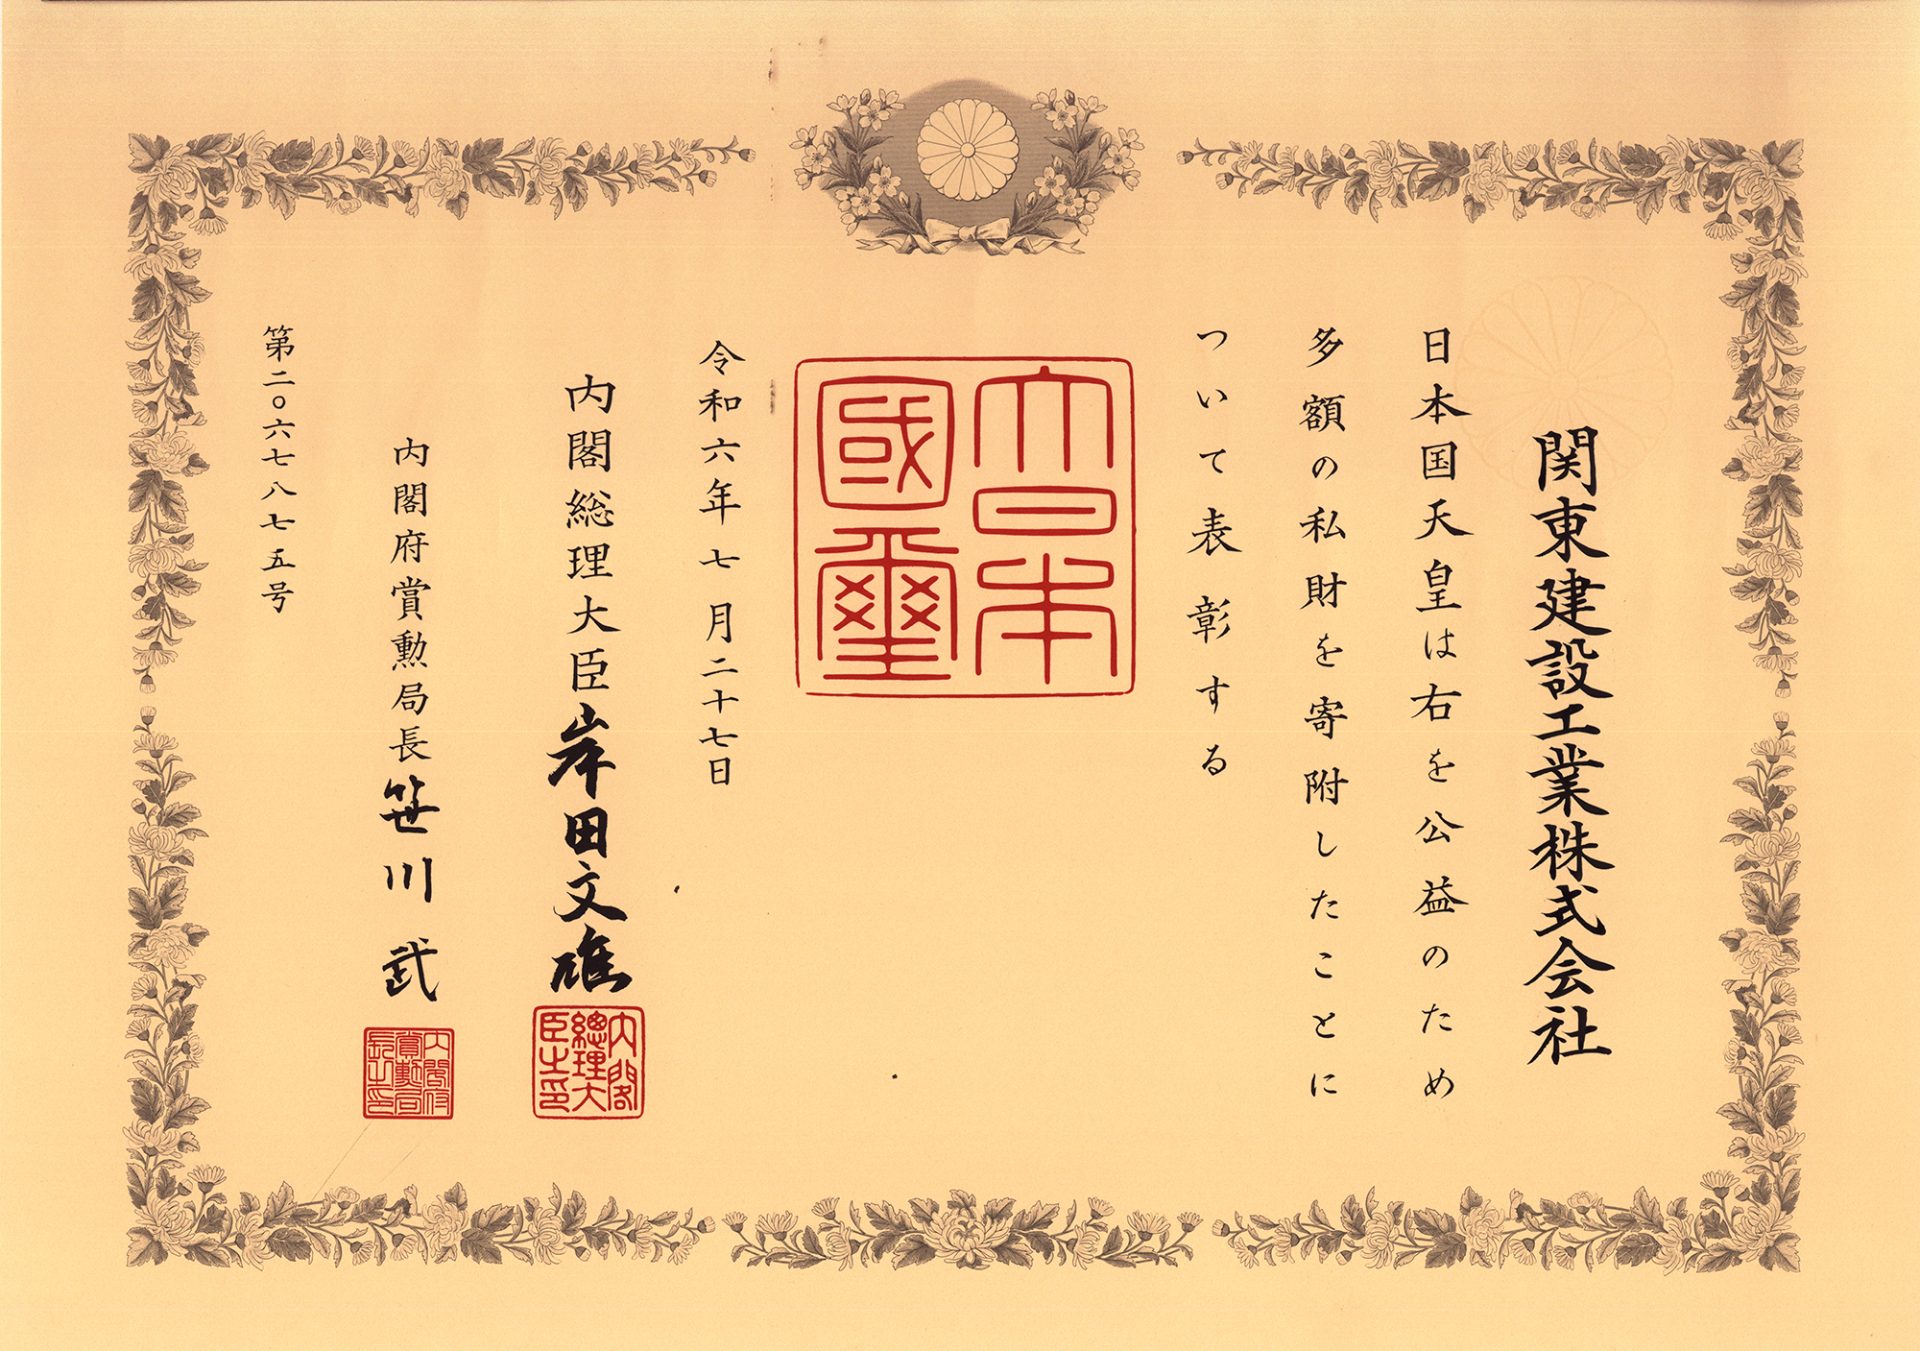 関東建設工業株式会社
日本国天皇は右を公益のため
多額の私財を寄附したことに
ついて表彰する
大日本
國璽
令和六年七月二十七日
内閣総理大臣岸田文雄
内閣総理大臣之印
内閣府賞勲局長笹川武
内閣府賞勲局長之印
第二〇六七八七五号